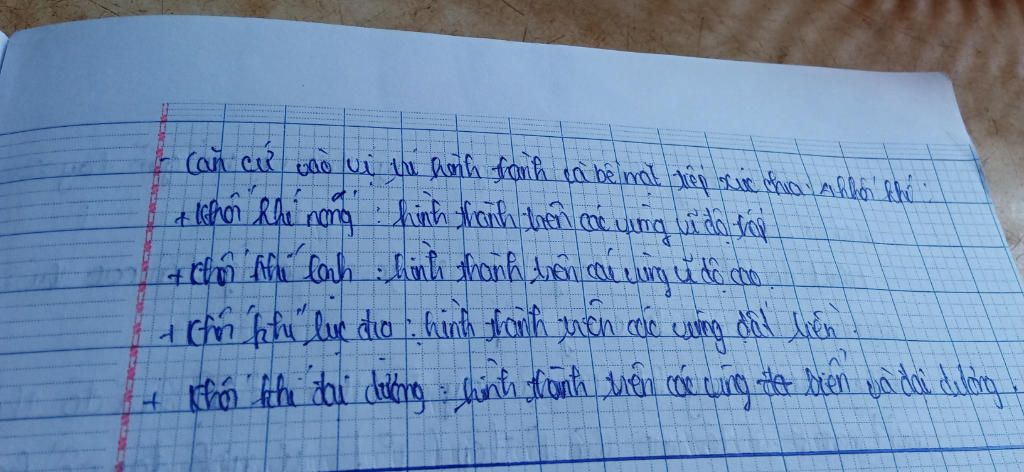 - Căn cứ vào vị trí hình thành và bề mặt tiếp xúc chia 4 khối khí:
+ Khối khí nóng: hình thành trên các vùng vĩ độ thấp
+ Khối khí lạnh: hình thành trên các vùng vĩ độ cao.
+ Khối khí lục địa: hình thành trên các vùng đất liền.
+ Khối khí đại dương: hình thành trên các vùng biển và đại dương.